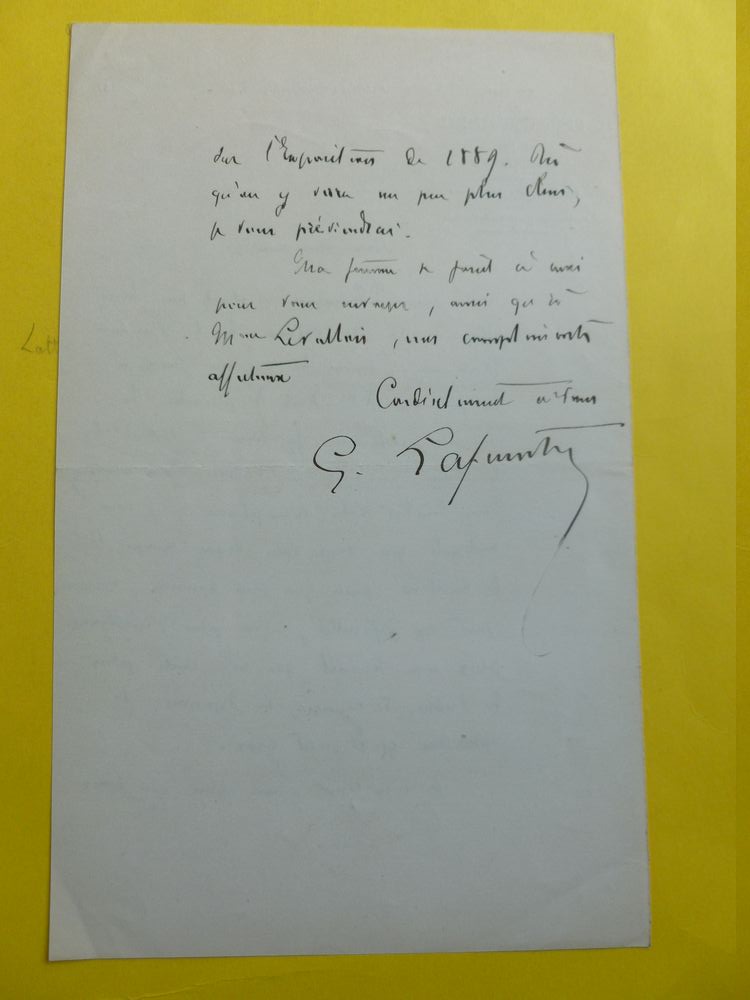 sur l'Exposition de 1889. Dès
qu'on y verra un peu plus clair,
je vous préviendrai.
Ma femme se joint à moi
pour vous envoyer, ainsi qu'à
Mme Levallois, nos compliments
affectueux
Cordialement à vous
G. Lafenestre
Latt